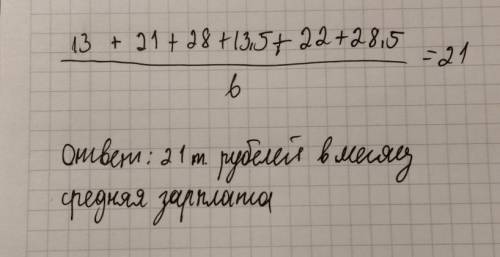 13 + 21 + 28 + 13,5 + 22 + 28,5
= 21
6
Ответ: 21 т. рублей в месяц
средняя зарплата